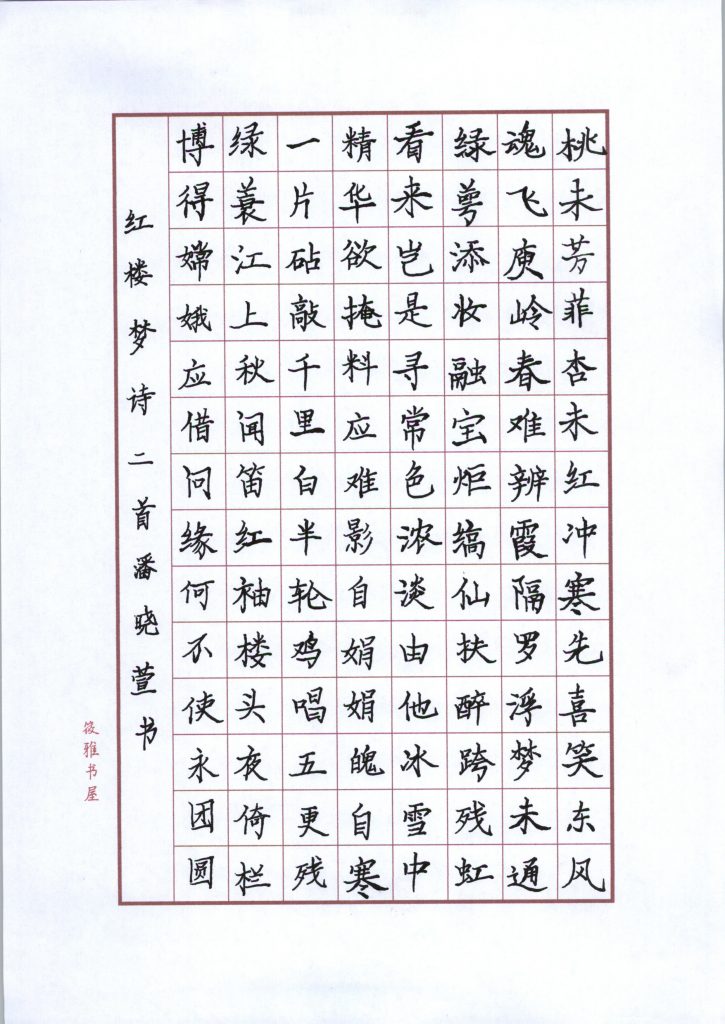 桃未芳菲杏未红冲寒先喜笑东风
魂飞庾岭春难辨霞隔罗浮梦未通
绿萼添妆融宝炬缟仙扶醉跨残虹
看来岂是寻常色浓淡由他冰雪中
精华欲掩料应难影自娟娟魄自寒
一片砧敲千里白半轮鸡唱五更残
绿蓑江上秋闻笛红袖楼头夜倚栏
博得嫦娥应借问缘何不使永团圆
红楼梦诗二首潘晓萱书
筱雅书屋